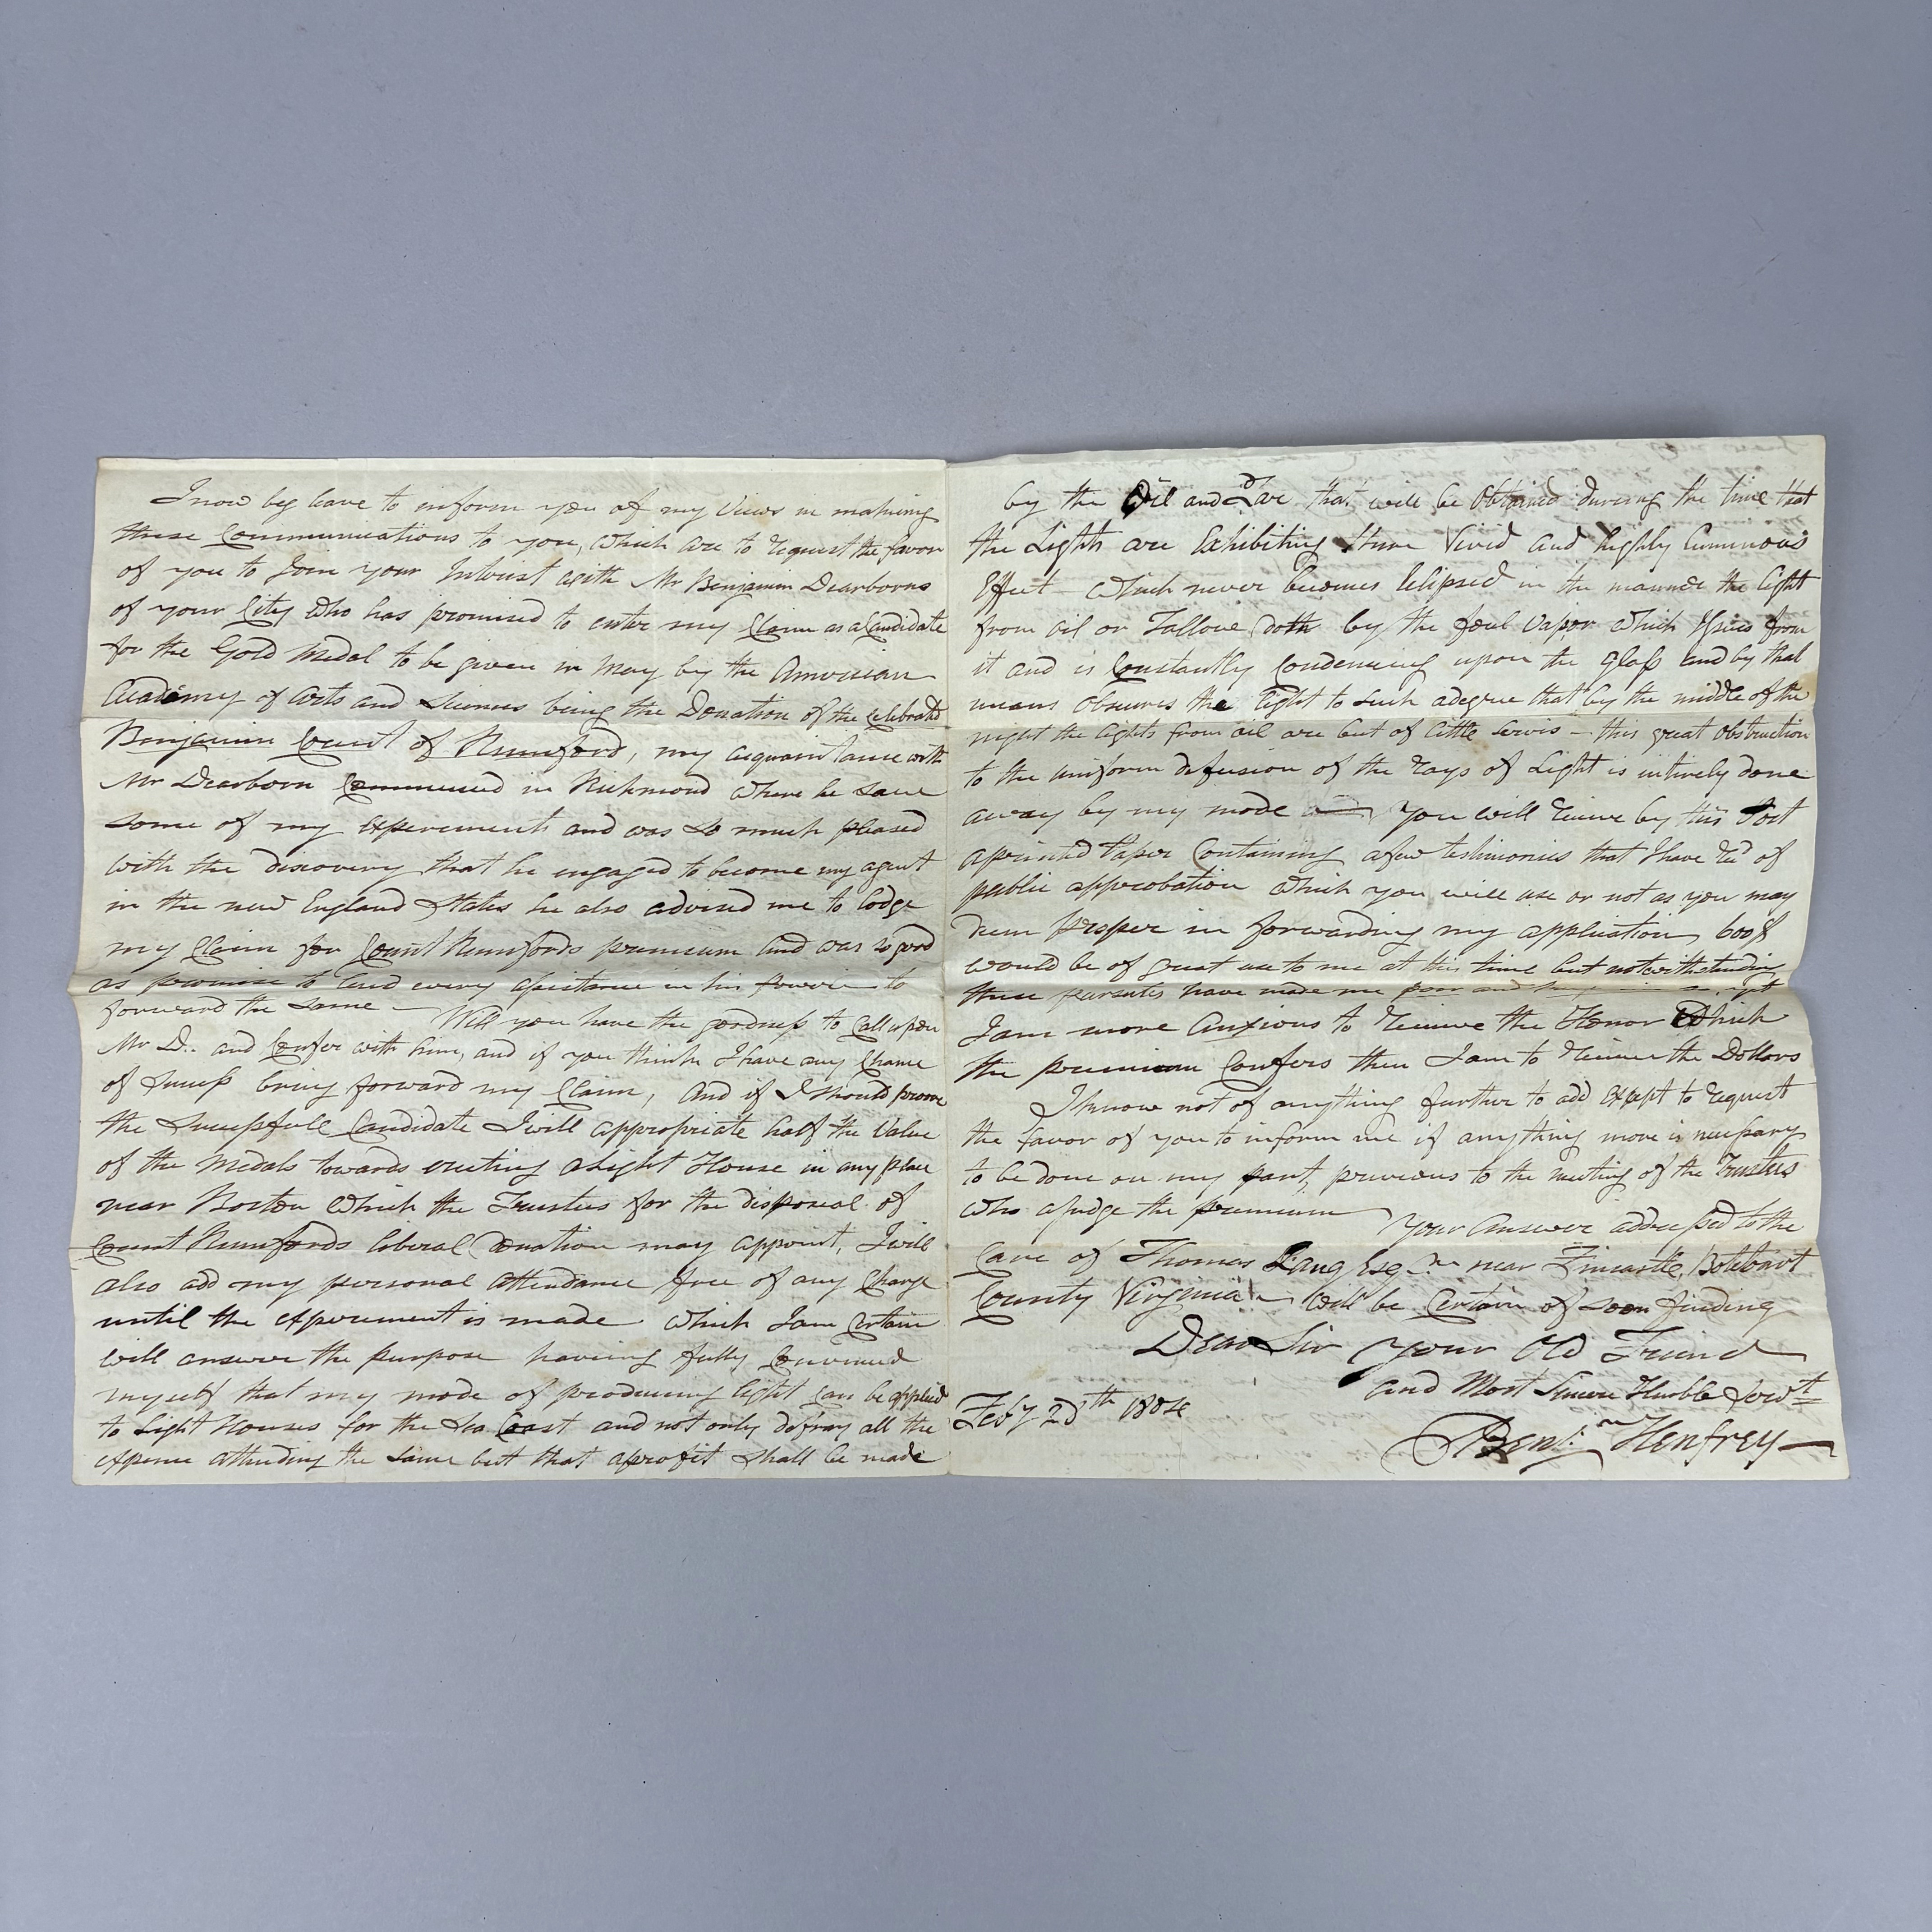 I now beg leave to inform you of my Views in making
these Communications to you, which are to request the favor
of you to Join your Intrist with Mr Benjamin Dearborns
of your City who has promised to enter my Claim as a Candidate
for the Gold Medal to be given in May by the American
Academy of Arts and Sciences being the Donation of the Celebrated
Benjamin Count of Rumford, my acquaintance with
Mr Dearborn Commenced in Richmond where he saw
some of my experements and was so much pleased
with the discovery that he engaged to become my agent
in the new England States he also advised me to lodge
my Claim for Count Rumfords premium and was so good
as promise to lend every assistance in his power to
forward the same — Will you have the goodness to Call upon
Mr D.. and Confer with him, and if you think I have any Chance
of Success bring forward my Claim, And if I should prove
the Successfull Candidate I will appropriate half the Value
of the Medals towards erecting a Light House in any place
near Boston which the Trustees for the disposeal of
Count Rumfords liberal Donation may appoint, I will
also add my personal attendance free of any Charge
until the experement is made which I am Certain
will answer the purpose having fully Convinced
myself that my mode of producing light Can be applied
to Light Houses for the Sea Coast and not only defray all the
expence attending the same but that a profit shall be made
by the Oil and Tar that will be Obtained during the time that
the Lights are Exhibiting there Vivid and highly Luminous
Effect — which never becomes Eclipsed in the manner the light
from oil or Tallow doth by the foul Vapor which Issues from
it and is Constantly Condencing upon the Glass and by that
means obscures the light to such a degree that by the middle of the
night the lights from oil are but of little servis — this great obstruction
to the uniform defusion of the rays of Light is intirely done
away by my mode You will receive by this Post
a printed Paper Containing a few testimonies that I have recd of
public approbation which you will use or not as you may
deem proper in forwarding my application, 600$
would be of great use to me at this time but notwithstanding
these pursutes have made me poor and
I am more Anxious to receive the Honor Which
the premium Confers then I am to receive the Dollars
I know not of anything further to add except to request
the favor of you to inform me if anything more is necessary
to be done on my part, previous to the meeting of the Trustees
who ajudge the premium Your Answer addressed to the
Care of Thomas Esqr near Fincastle, Botetourt
County Virginia — will be Certain of soon finding
Dear Sir Your Old Friend
and Most Sincere Humble Servt
Feby 1804
Benjn Henfrey